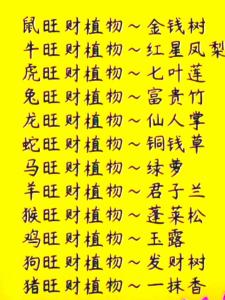 鼠旺财植物～金钱树
牛旺财植物～红星凤梨
虎旺财植物～七叶莲
兔旺财植物～富贵竹
龙旺财植物～仙人掌
蛇旺财植物～铜钱草
马旺财植物～绿萝
羊旺财植物～君子兰
猴旺财植物～蓬莱松
鸡旺财植物～玉露
狗旺财植物～发财树
猪旺财植物～一抹香